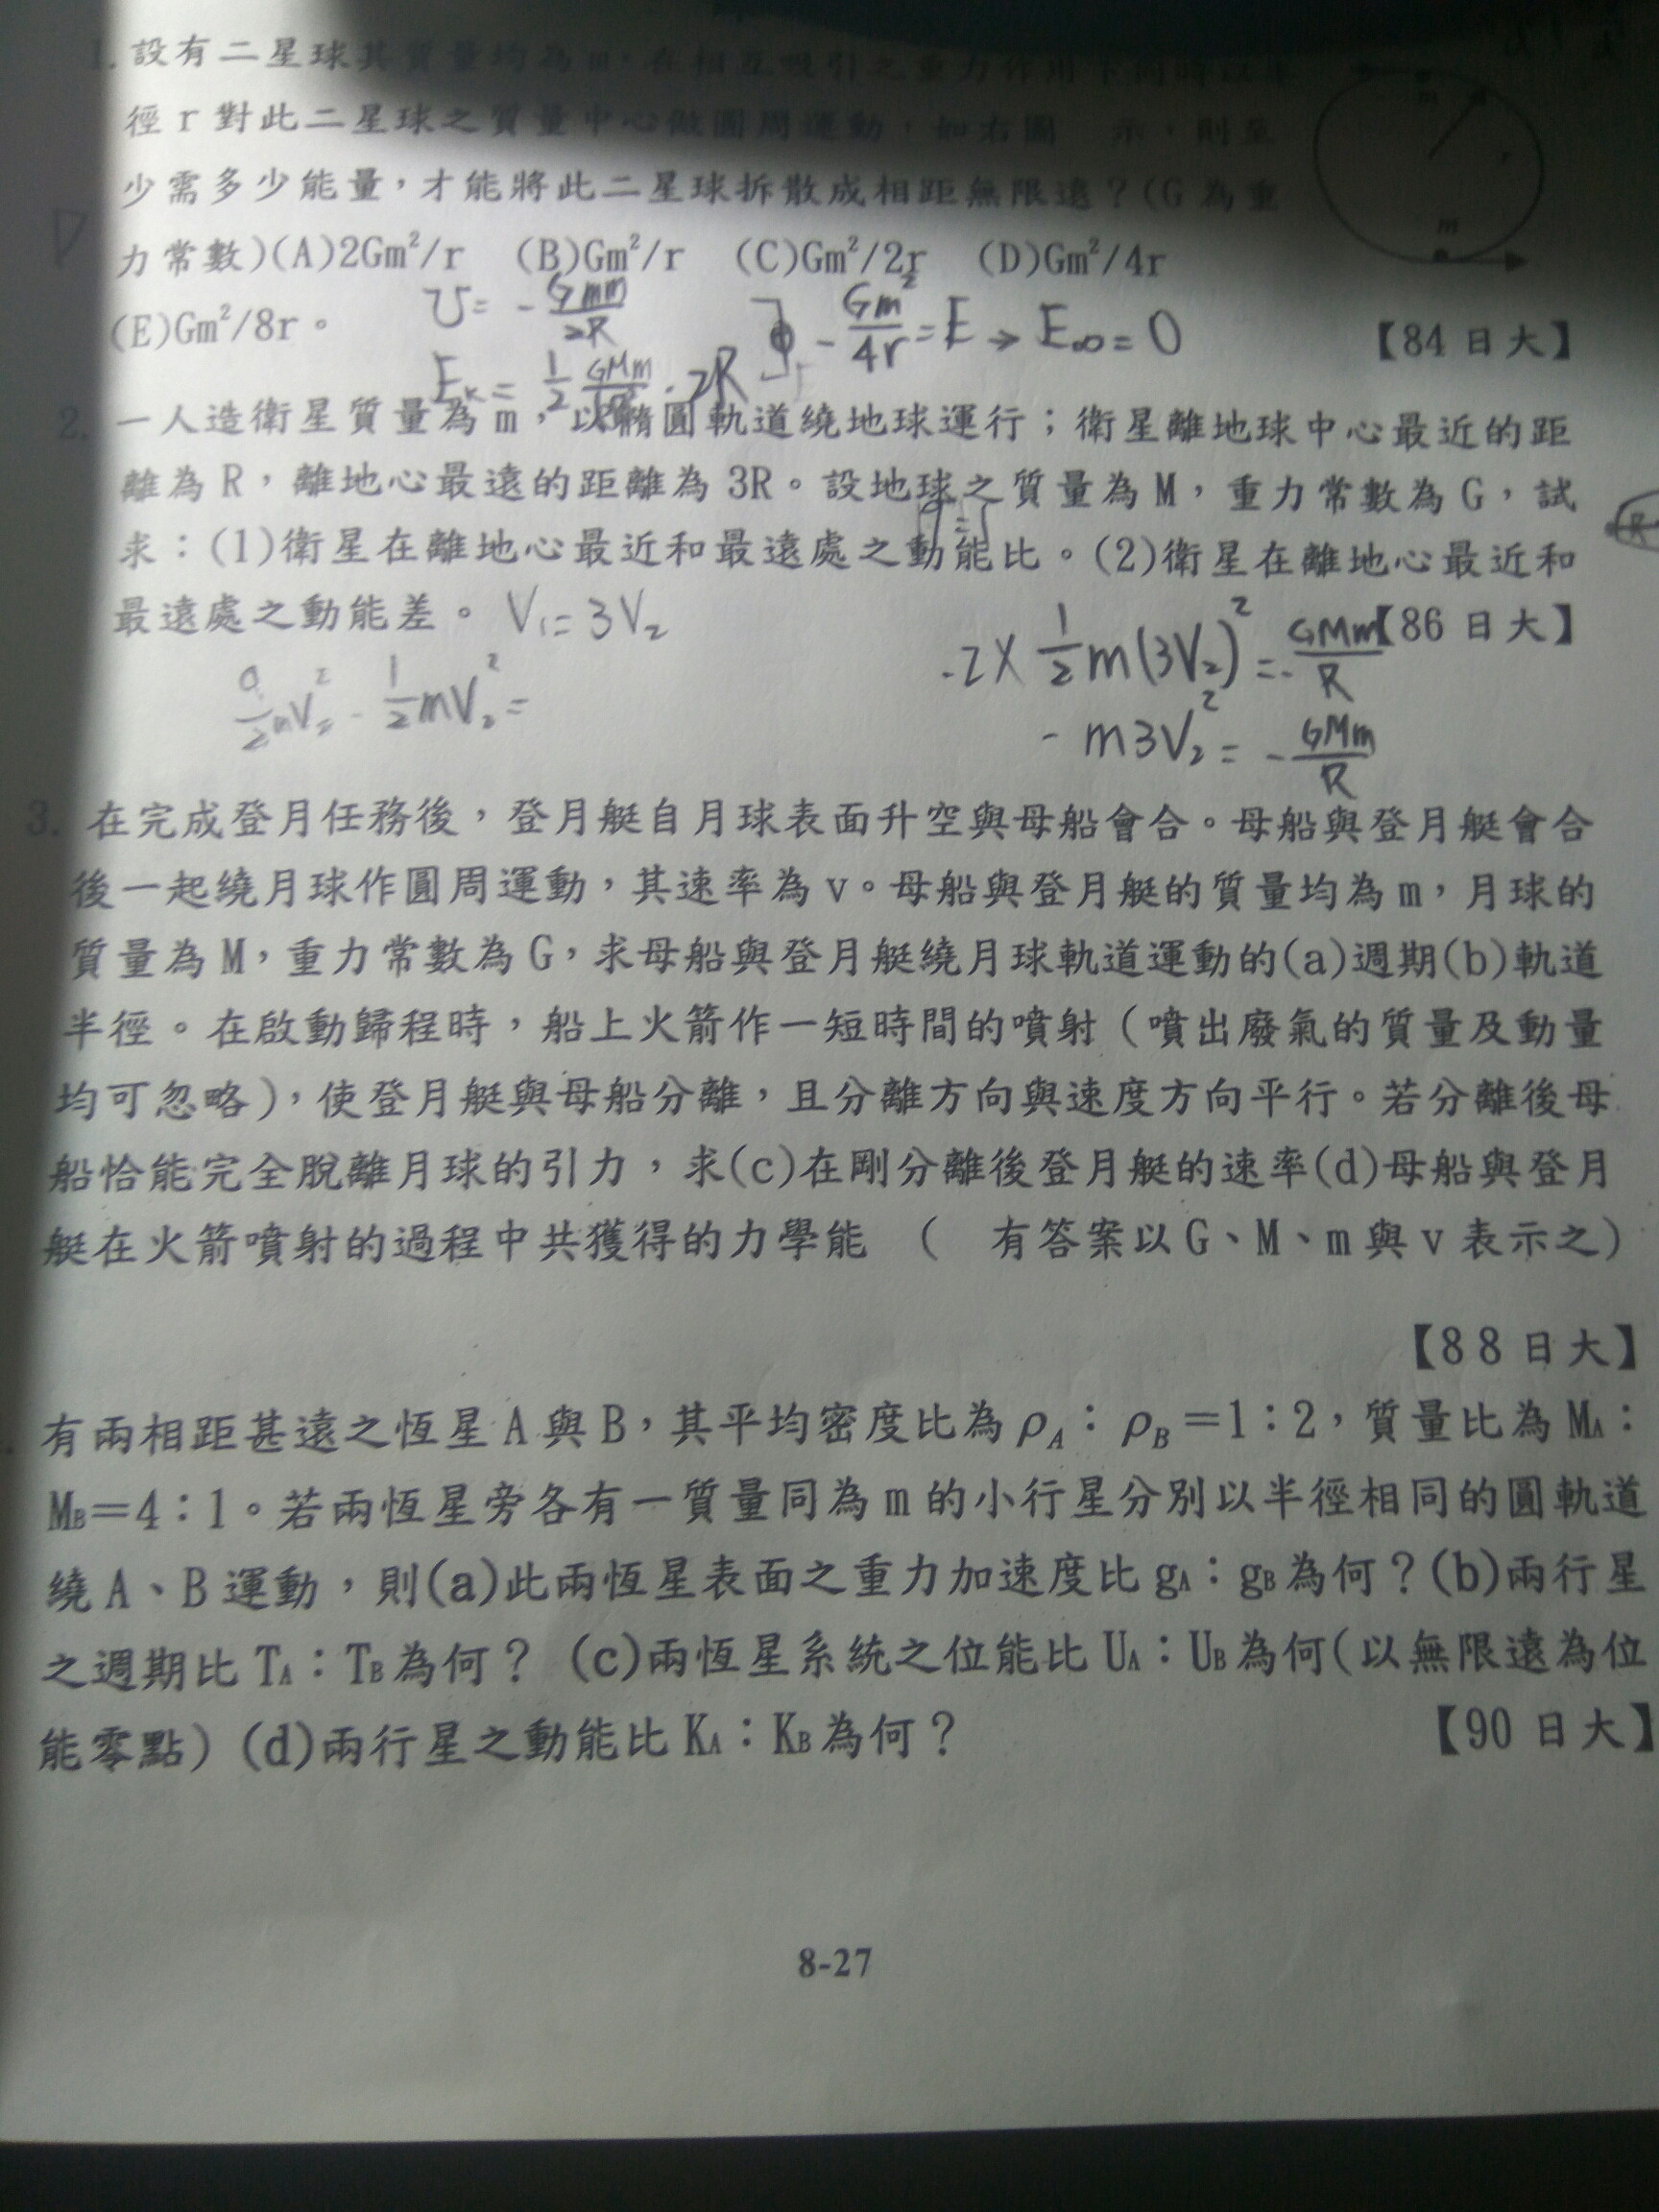 1. 設有二星球其質量均為m，在相互吸引之重力作用下同時以半
徑r對此二星球之質量中心做圓周運動，如右圖 示，則至
少需多少能量，才能將此二星球拆散成相距無限遠？(G為重
力常數)(A)2Gm²/r (B)Gm²/r (C)Gm²/2r (D)Gm²/4r
(E)Gm²/8r。
【84日大】
D
m
r
m
U = - Gmm/2R
E_k = 1/2 GMm · 2R
- Gm²/4r = E → E∞ = 0
2. 一人造衛星質量為m，以橢圓軌道繞地球運行；衛星離地球中心最近的距
離為R，離地心最遠的距離為3R。設地球之質量為M，重力常數為G，試
求：(1)衛星在離地心最近和最遠處之動能比。(2)衛星在離地心最近和
最遠處之動能差。
【86日大】
V₁ = 3V₂
9/2 mV₂² - 1/2 mV₂² =
-2 × 1/2 m(3V₂)² = - GMm/R
- m3V₂² = - GMm/R
3. 在完成登月任務後，登月艇自月球表面升空與母船會合。母船與登月艇會合
後一起繞月球作圓周運動，其速率為v。母船與登月艇的質量均為m，月球的
質量為M，重力常數為G，求母船與登月艇繞月球軌道運動的(a)週期(b)軌道
半徑。在啟動歸程時，船上火箭作一短時間的噴射（噴出廢氣的質量及動量
均可忽略），使登月艇與母船分離，且分離方向與速度方向平行。若分離後母
船恰能完全脫離月球的引力，求(c)在剛分離後登月艇的速率(d)母船與登月
艇在火箭噴射的過程中共獲得的力學能 （ 有答案以G、M、m與v表示之）
【88日大】
有兩相距甚遠之恆星A與B，其平均密度比為ρA：ρB＝1：2，質量比為MA：
MB＝4：1。若兩恆星旁各有一質量同為m的小行星分別以半徑相同的圓軌道
繞A、B運動，則(a)此兩恆星表面之重力加速度比gA：gB為何？(b)兩行星
之週期比TA：TB為何？ (c)兩恆星系統之位能比UA：UB為何(以無限遠為位
能零點) (d)兩行星之動能比KA：KB為何？
【90日大】
8-27